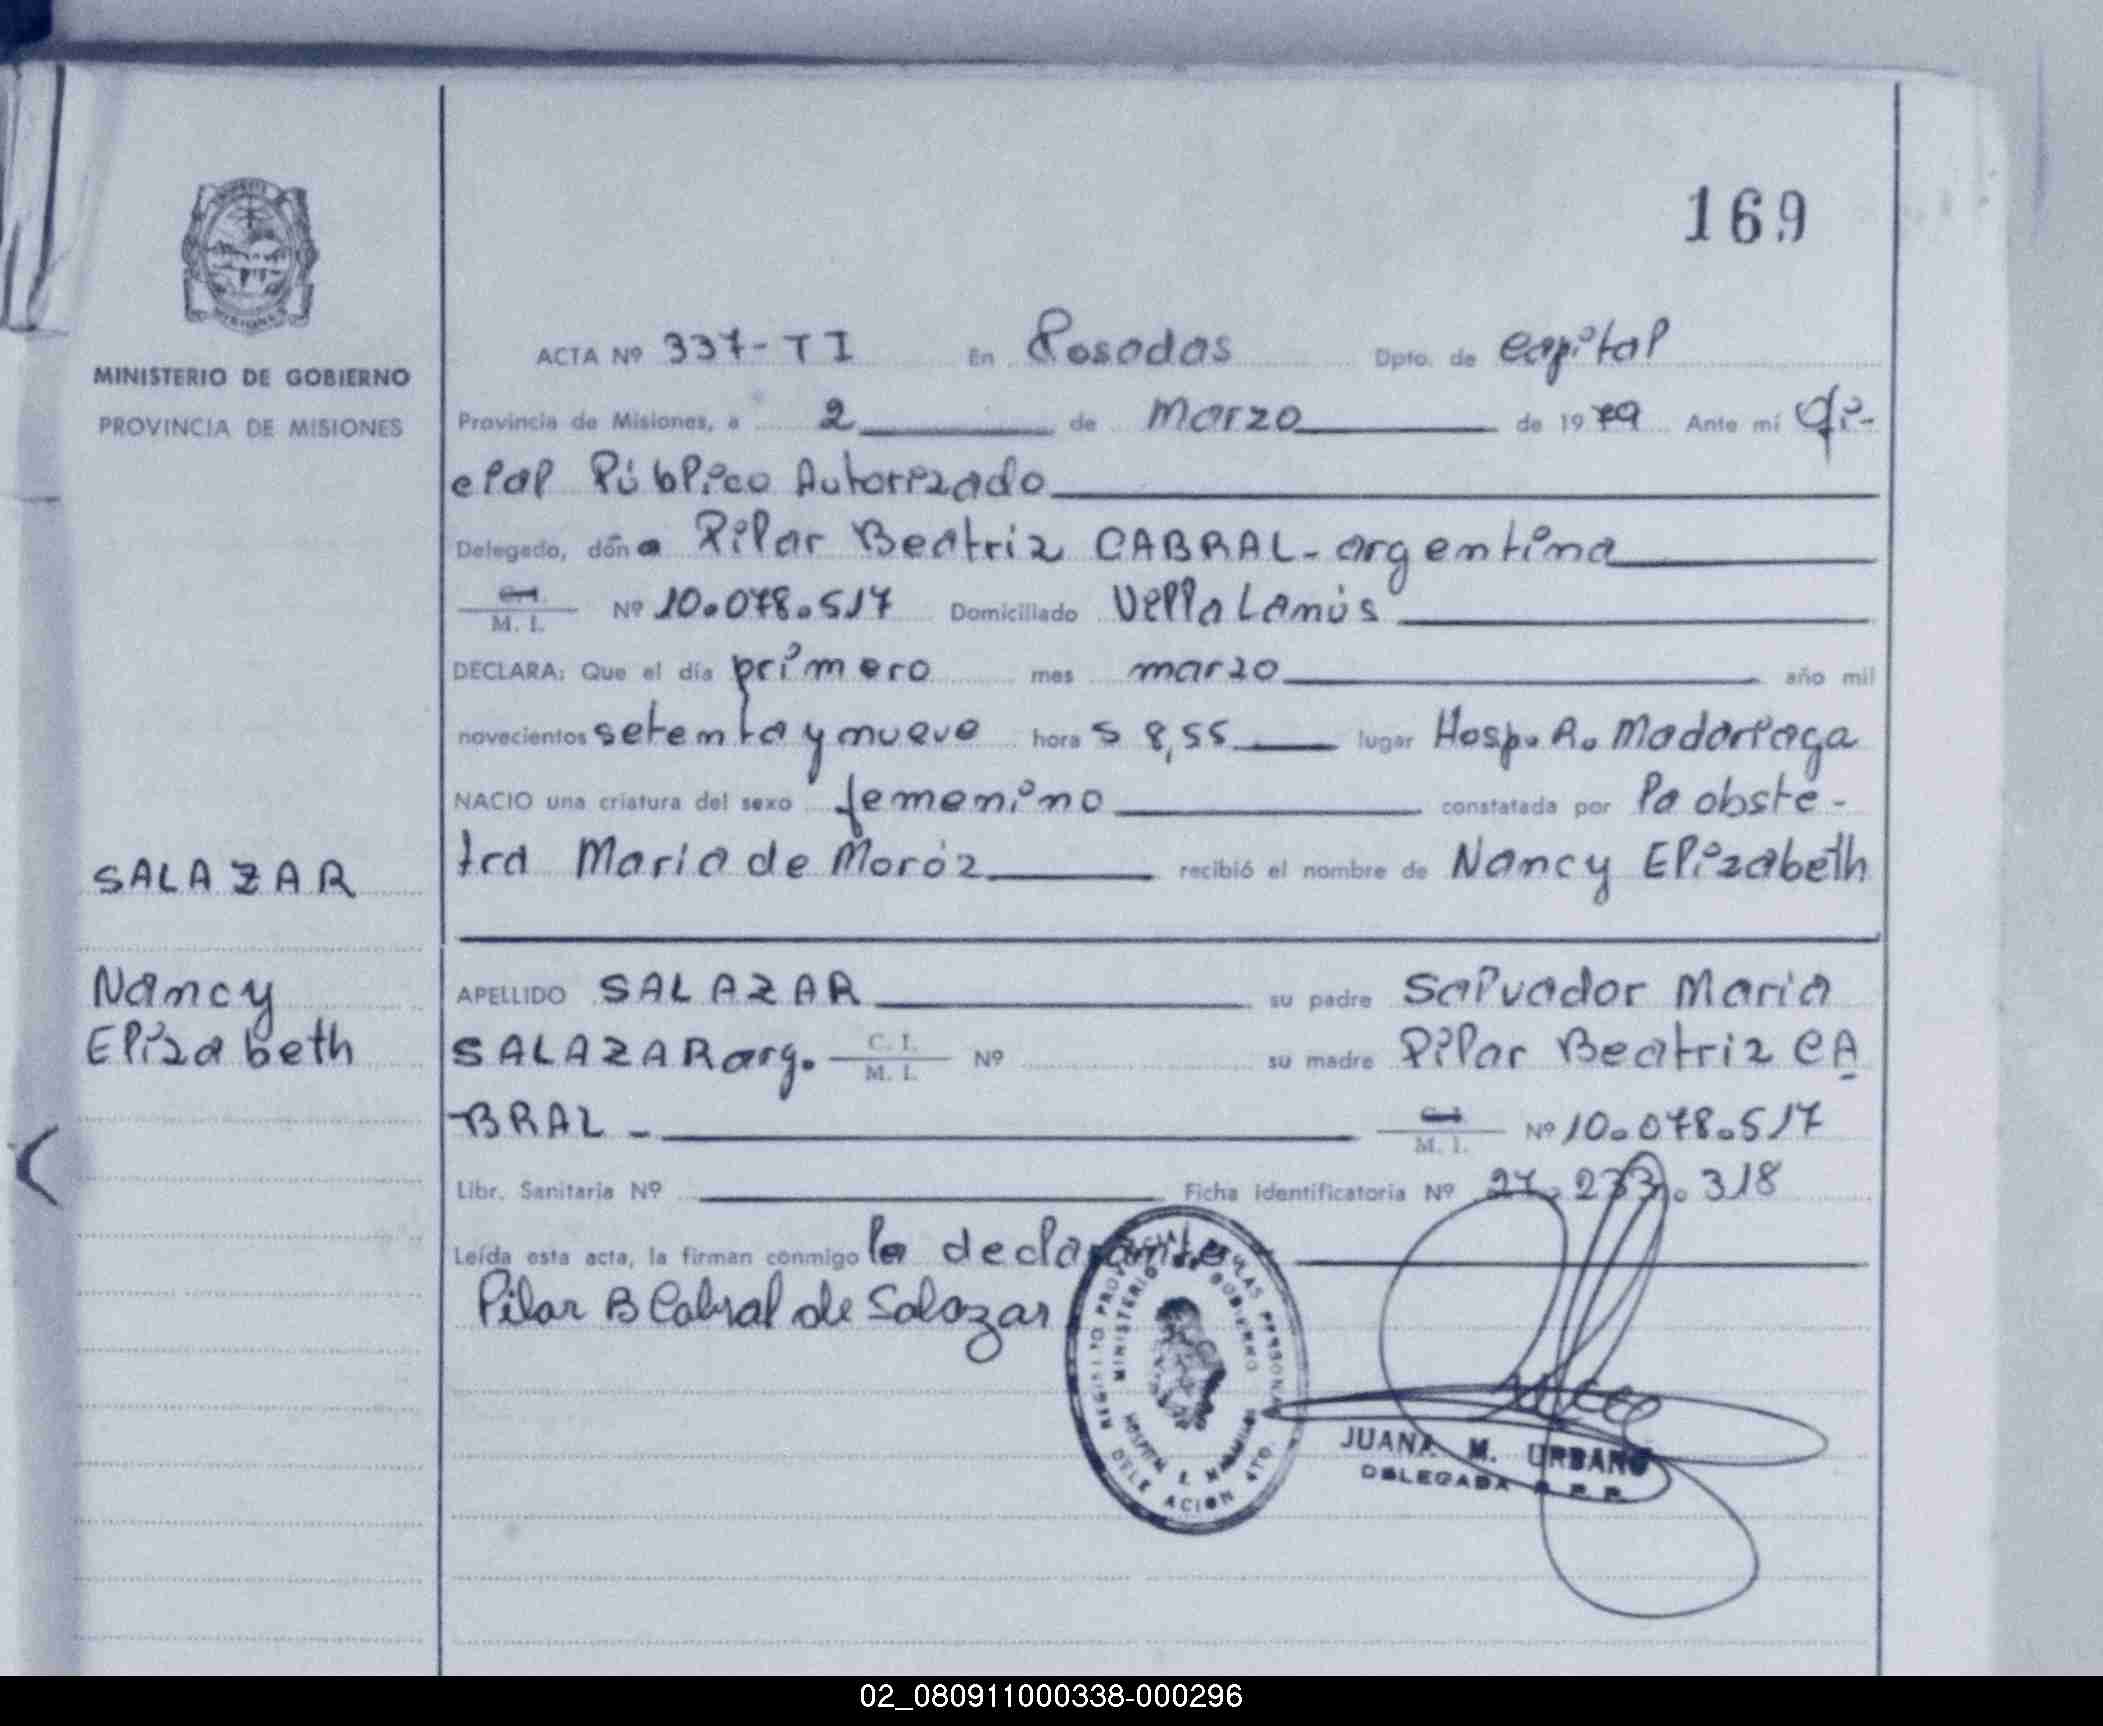 169
MINISTERIO DE GOBIERNO
PROVINCIA DE MISIONES
ACTA Nº 337-TI En Posadas Dpto. de Capital
Provincia de Misiones, a 2 de Marzo de 1979 Ante mí Ofi-
cial Público Autorizado
Delegado, doña Pilar Beatriz CABRAL-argentina
C.I. M. I. Nº 10.078.517 Domiciliado Villa Lanús
DECLARA: Que el día primero mes marzo año mil
novecientos setenta y nueve hora s 8,55 lugar Hosp. R. Madariaga
NACIO una criatura del sexo femenino constatada por la obste-
tra Maria de Moróz recibió el nombre de Nancy Elizabeth
SALAZAR
Nancy
Elizabeth
APELLIDO SALAZAR su padre Salvador Maria
SALAZAR arg. C. I. M. I. Nº su madre Pilar Beatriz CA
BRAL - C.I. M. I. Nº 10.078.517
Libr. Sanitaria Nº Ficha identificatoria Nº 27.233.318
Leída esta acta, la firman conmigo la declarante
Pilar B Cabral de Salazar
REGISTRO PROVINCIAL DE LAS PERSONAS
MINISTERIO DE GOBIERNO
HOSPITAL R. MADARIAGA
DELEGACION 4TO.
JUANA M. URBANO
DELEGADA R. P. P.
02_080911000338-000296